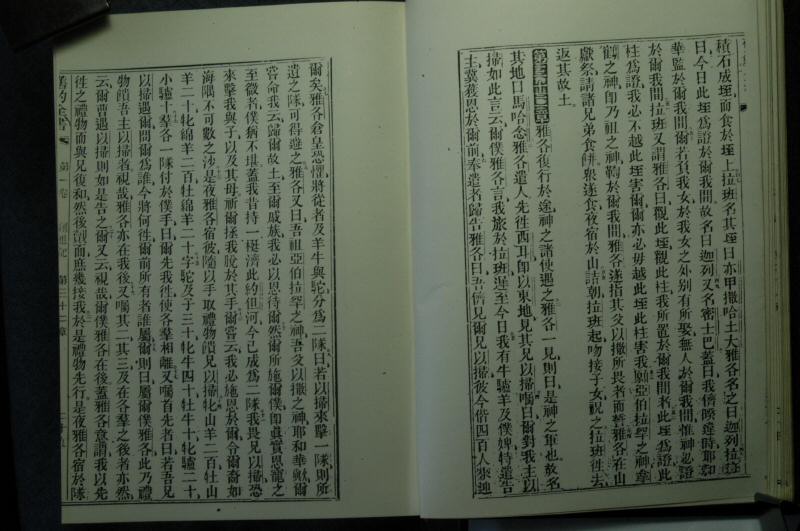 積石成垤而食於垤上拉班名其垤曰亦甲撒哈土大雅各名之曰迦列拉班
曰今日此垤爲證於爾我間故名曰迦列又名密士巴蓋曰我儕暌違時耶和
華監於爾我間爾若負我女於我女之外別有所娶無人於爾我間惟神必證
於爾我間拉班又謂雅各曰觀此垤觀此柱我所置於爾我間者此垤爲證此
柱爲證我必不越此垤害爾爾亦必毋越此垤此柱害我願亞伯拉罕之神拿
鶴之神卽乃祖之神鞫於爾我間雅各遂指其父以撒所畏者而誓雅各在山
獻祭請諸兄弟食餅衆遂食夜宿於山詰朝拉班起吻接子女祝之拉班往去
返其故土
第三十二章雅各復行於途神之諸使遇之雅各一見則曰是神之軍也故名
其地曰馬哈念雅各遣人先徃西耳卽以東地見其兄以掃囑曰爾對我主以
掃如此言云爾僕雅各言我旅於拉班遲至今日我有牛驢羊及僕婢特遣告
主冀獲恩於爾前奉遣者歸告雅各曰吾儕見爾兄以掃彼今偕四百人來迎
爾矣雅各倉皇恐懼將從者及羊牛與駝分爲二隊曰若以掃來擊一隊則所
遺之隊可得避之雅各又曰吾祖亞伯拉罕之神吾父以撒之神耶和華歟爾
嘗命我云歸爾故土至爾戚族我必以恩待爾然爾所施爾僕卽眞實恩寵之
至微者僕猶不堪蓋我昔持一梃濟此約但河今已成爲二隊我畏兄以掃恐
來擊我與子以及其母祈爾拯我脫於其手爾嘗云我必施恩於爾令爾裔如
海隅不可數之沙是夜雅各宿彼隨以手取禮物饋兄以掃牝山羊二百牡山
羊二十牝綿羊二百牡綿羊二十字駝及子三十牝牛四十牡牛十牝驢二十
小驢十羣各一隊付於僕手曰爾先我徃使各羣相離又囑首先者曰若吾兄
以掃遇爾問爾爲誰今將何徃爾前所有者誰屬爾則曰屬爾僕雅各此乃禮
物饋吾主以掃者視哉雅各亦在我後又囑其二其三及在各羣之後者亦然
云爾曹遇以掃則如是告之爾又云視哉爾僕雅各在後蓋雅各意謂我以先
徃之禮物而與兄復和然後覿面庶幾接我於是禮物先行是夜雅各宿於隊
舊約全書 第一卷 創世記 第三十二章